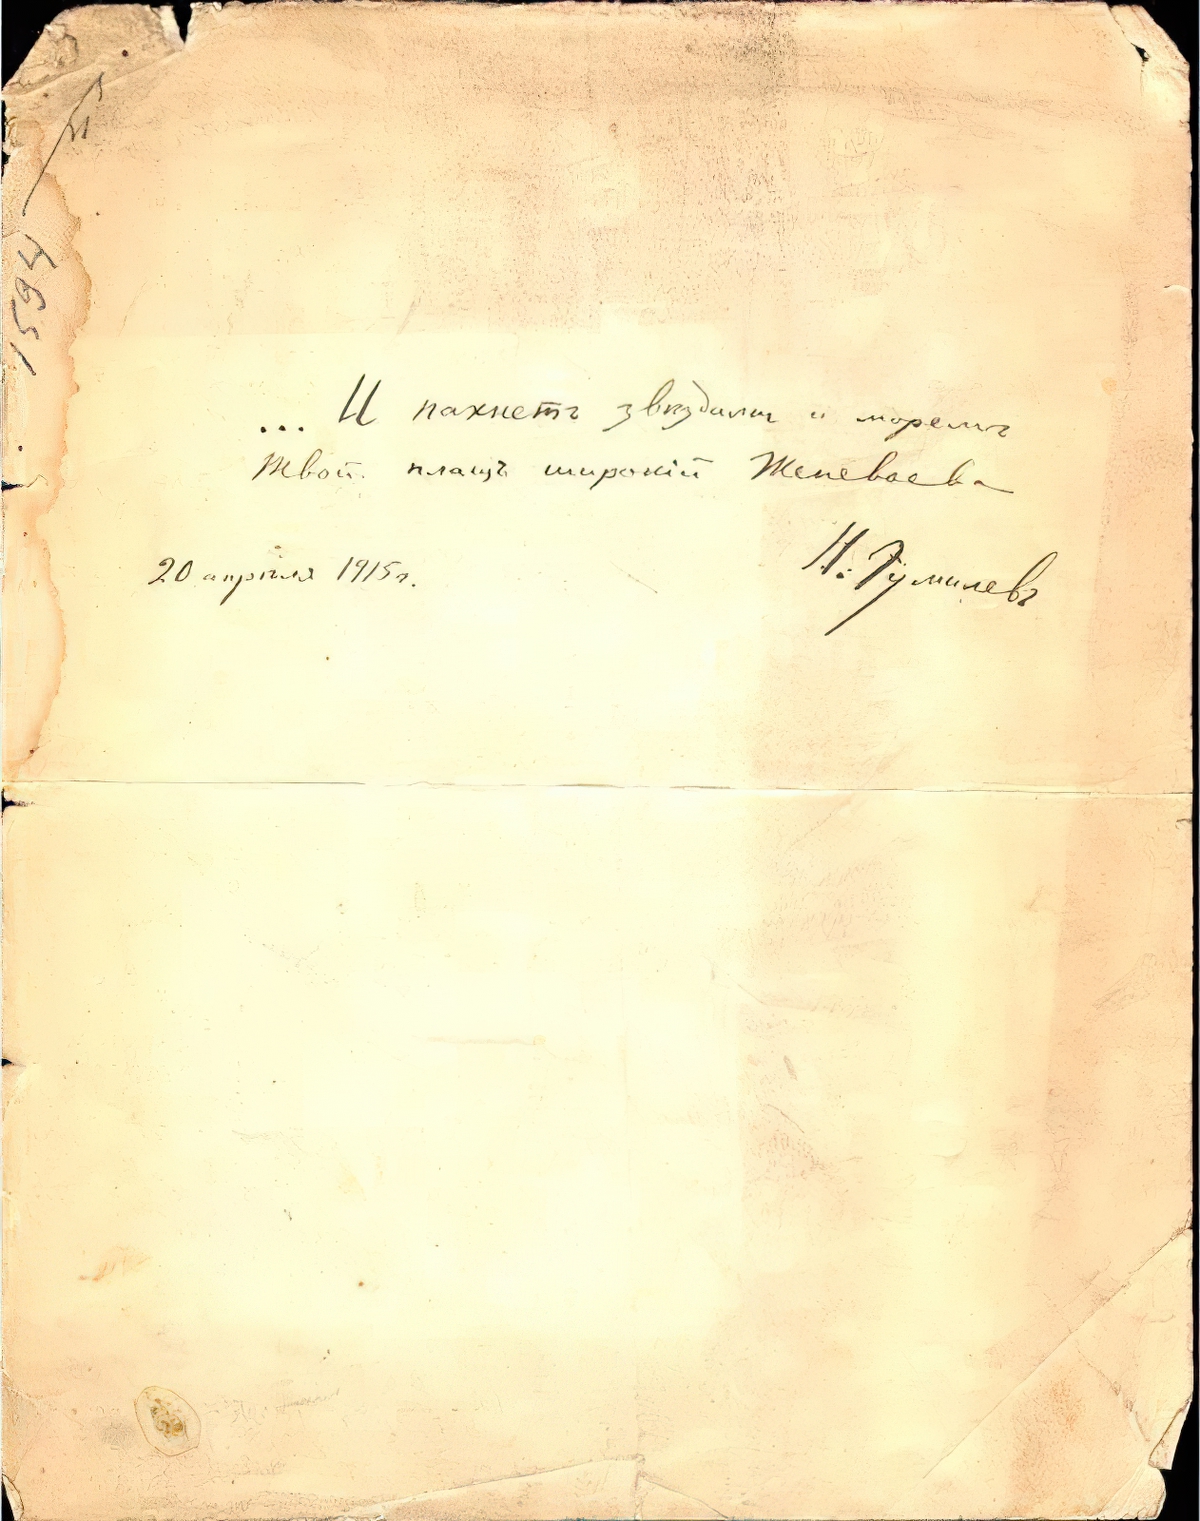 1594
... И пахнетъ звѣздами и моремъ
Твой плащъ широкій Женевьева
20 апрѣля 1915 г.
Н. Гумилевъ